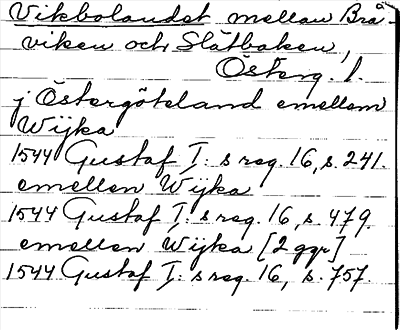 Vikbolandet mellan Brå-
viken och Slätbaken,
Österg. l.
j Östergöteland emellom
Wijka
1544 Gustaf I: s reg. 16, s. 241.
emellen Wijka
1544 Gustaf I: s reg. 16, s. 479.
emellen Wijka [2 ggr]
1544 Gustaf I: s reg. 16, s. 757.